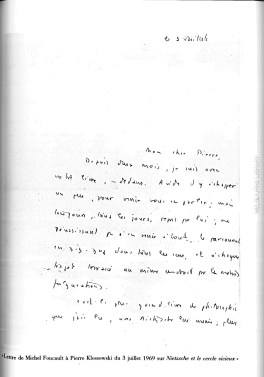 le 3 juillet
Mon cher Pierre,
Depuis deux mois, je suis avec
votre livre, — dedans. Avide d'y échapper
un peu, pour venir vous en parler; mais
toujours, tous les jours, repris par lui; ne
réussissant pas à en venir à bout, le parcourant
en zig-zag dans tous les sens, et à chaque
au même endroit par les mêmes
fulgurations.
C'est le plus grand livre de philosophie
que j'ai lu, avec Nietzsche lui-même; plus
«Lettre de Michel Foucault à Pierre Klossowski du 3 juillet 1969 sur Nietzsche et le cercle vicieux»